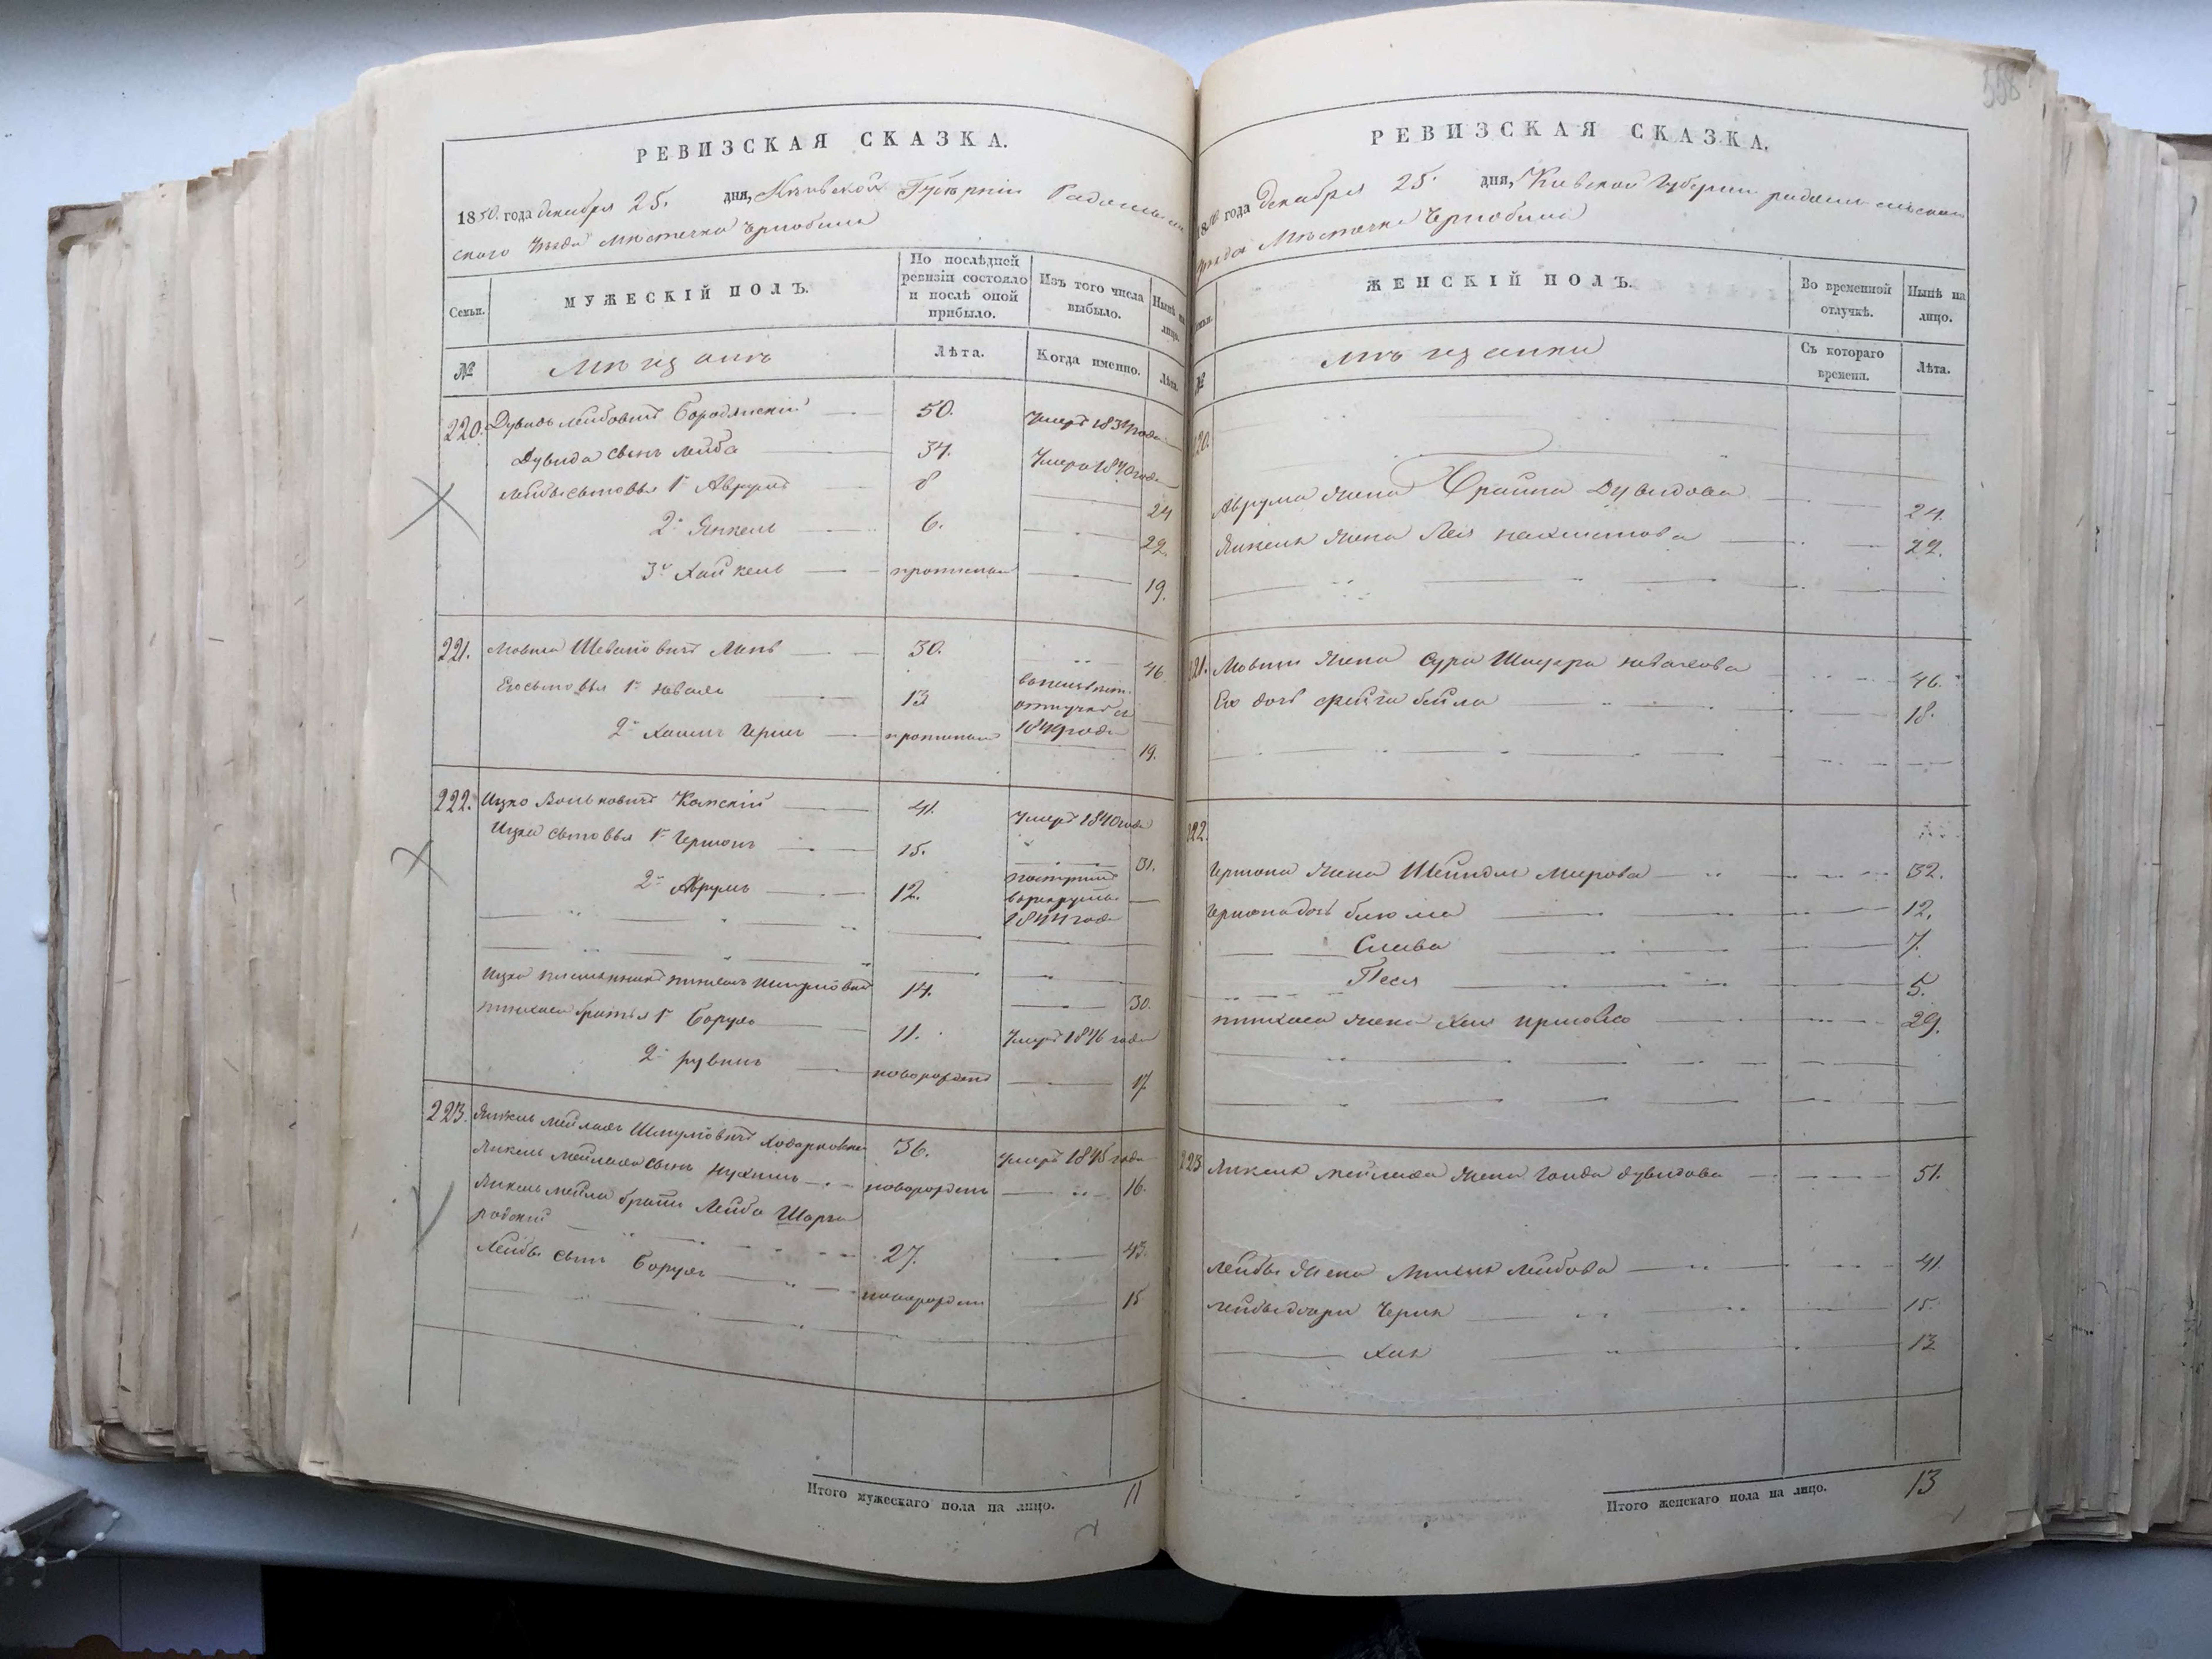 558
РЕВИЗСКАЯ СКАЗКА.
1850. года декабря 25. дня, Кіевской Губерніи Радомысль
скаго Уезда Местечка Чернобыля
Семьи.
МУЖЕСКІЙ ПОЛЪ.
По послѣдней ревизіи состояло и послѣ оной прибыло.
Изъ того числа выбыло.
Нынѣ на лицо.
№
Мѣщанъ
Лѣта.
Когда именно.
Лѣта.
220. Дувидъ Лейбовичъ Бородянскій 50. Умеръ 183 года
Дувида сынъ Лейба 34. Умеръ 1840 года
Лейбы сыновья 1й Аврумъ 8 24
2й Янкель 6. 22.
3й Хайкель прописной 19.
221. Мовша 30. 46.
Его сыновья 1й 13 отлучкѣ съ 1849 года
2й Хаимъ Герш прописной 19.
222. Ицко Вольковичъ Камскій 41. Умеръ 1840 года
Ицка сыновья 1й Гершонъ 15. 31.
2й Аврумъ 12. поступилъ в рекруты 1844 года
Ицка племянникъ Пинхасъ 14. 30.
Пинхаса братья 1й Борухъ 11. Умеръ 1846 года
2й Рувинъ новорожден 17
223. Янкель Мейлахъ Шмулёвичъ 36. Умеръ 1845 года
Янкель Мейлаха сынъ Нухимъ новорожденъ 16.
Янкель Мейла братъ Лейба Шарго
родскій 27. 43.
Лейбы сынъ Борухъ новорожден 15
Итого мужескаго пола на лицо. 11
РЕВИЗСКАЯ СКАЗКА.
1850 года Декабря 25. дня, Кіевской Губерніи радомысльскаго
уезда Местечка Чернобыля
Семьи.
ЖЕНСКІЙ ПОЛЪ.
Во временной отлучкѣ.
Нынѣ на лицо.
№
мѣщанки
Съ котораго времени.
Лѣта.
220.
Аврума жена Фрейна Дувидова 24.
Янкеля жена Лея 22.
221. Мовши жена Сура 46.
Его дочь Фейга Бейла 18.
222.
Гершона жена Шейндля Меерова 32.
Гершона дочь Блюма 12.
Слава 7.
Песя 5.
Пинхаса жена Хая 29.
223 Янкеля Мейлаха жена Голда Дувидова 51.
Лейбы жена Лейбова 41
Лейбы дочери Черня 15.
Хая 13
Итого женскаго пола на лицо. 13